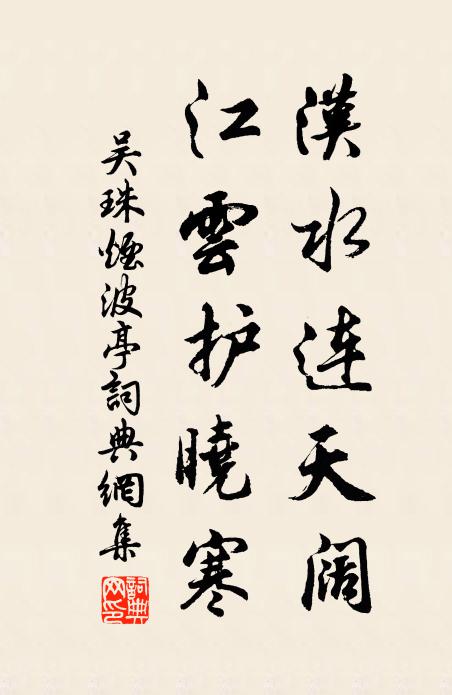 漢水连天阔
江雲护曉寒
吴珠煙波亭詞典網集
詞典網印